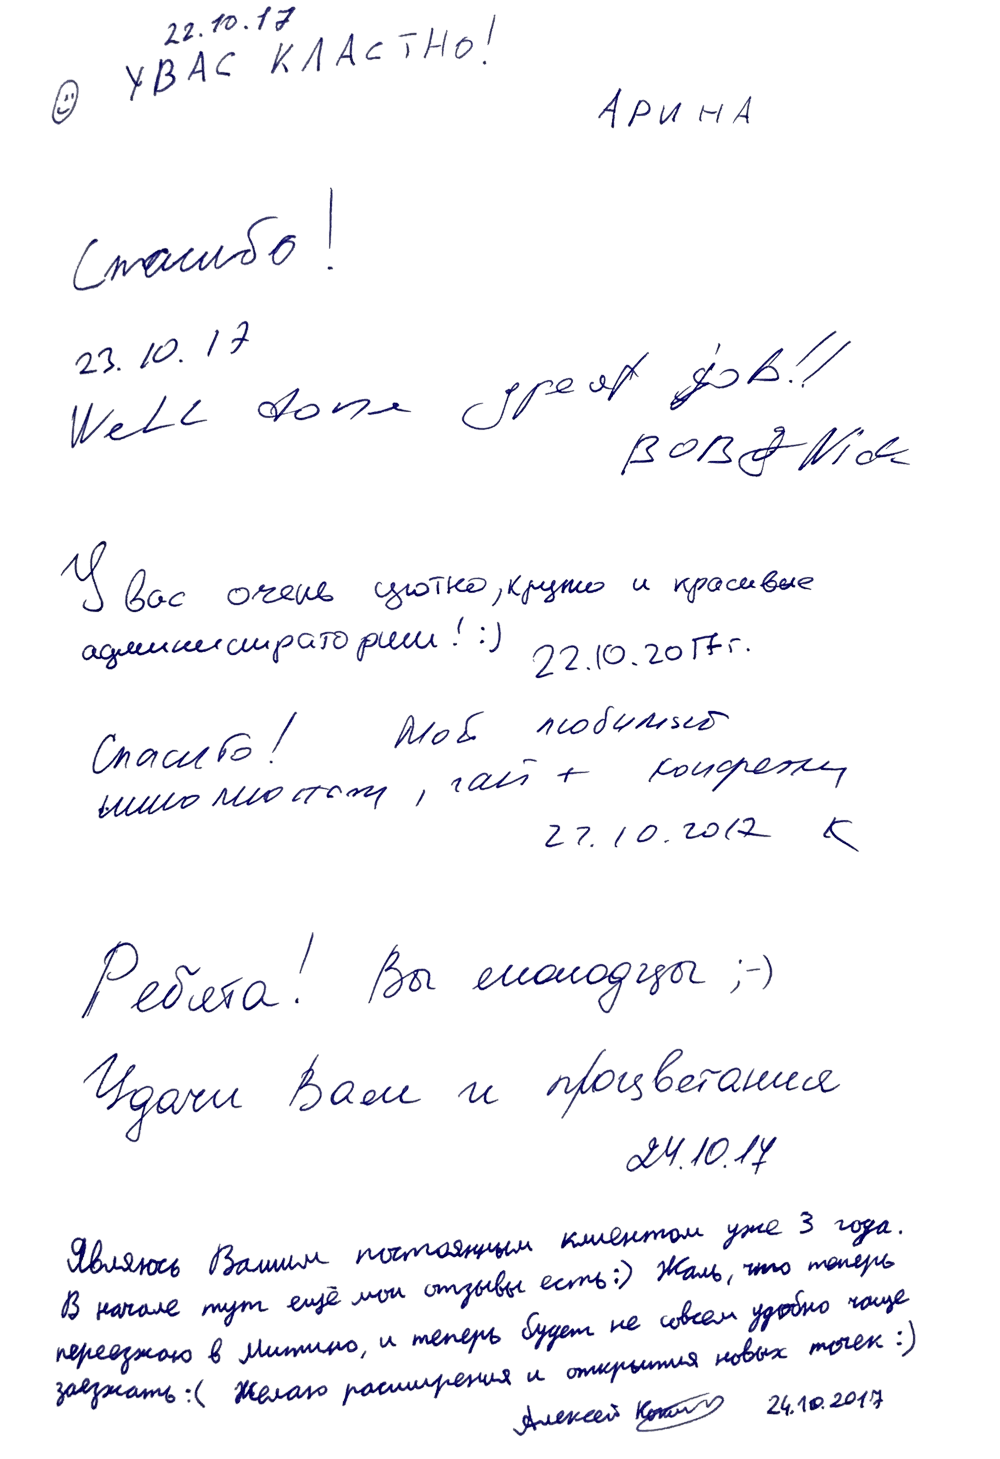 22.10.17
У ВАС КЛАСТНО!
АРИНА
Спасибо!
23.10.17
Well done great job!!
BOB & Nick
У вас очень уютно, круто и красивые
администраторши! :)
22.10.2017г.
Спасибо! Мой любимый
, чай + конфетку
27.10.2017 К
Ребята! Вы молодцы ;-)
Удачи Вам и процветания
24.10.17
Являюсь Вашим постоянным клиентом уже 3 года.
В начале тут ещё мои отзывы есть :) Жаль, что теперь
переезжаю в Митино, и теперь будет не совсем удобно чаще
заезжать :( Желаю расширения и открытия новых точек :)
Алексей
24.10.2017